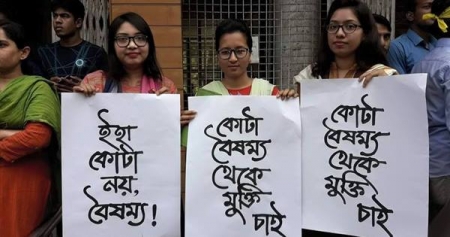 ইহা
কোটা
নয়,
বৈষম্য!
কোটা
বৈষম্য
থেকে
মুক্তি
চাই
কোটা
বৈষম্য
থেকে
মুক্তি
চাই